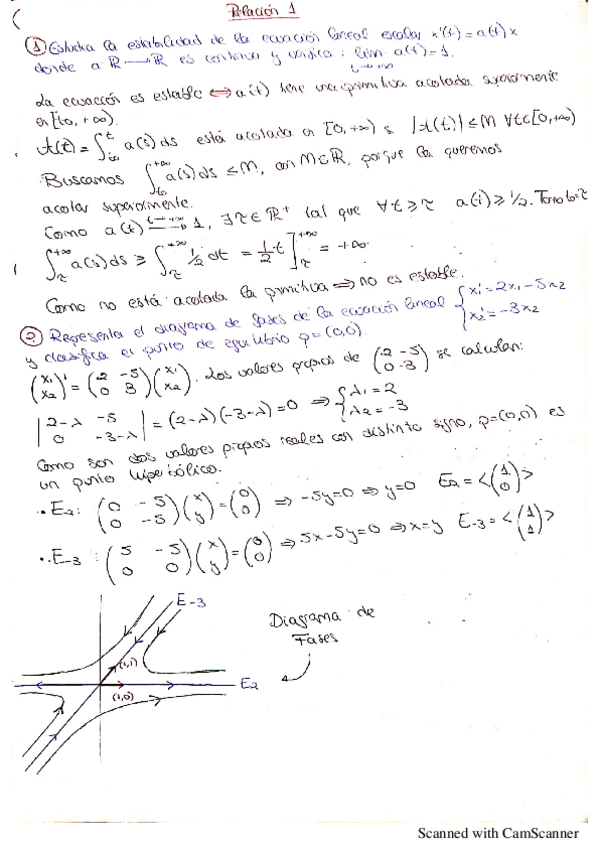 Relación 1
① Estudia la estabilidad de la ecuación lineal escalar x'(t) = a(t) x
donde a: ℝ → ℝ es continua y verifica: lim a(t) = 1.
t→+∞
La ecuación es estable ⟺ a(t) tiene una primitiva acotada superiormente
en [t₀, +∞).
A(t) = ∫_{t₀}^{t} a(s) ds está acotada en [0, +∞) si |A(t)| ≤ M ∀t∈[0, +∞)
Buscamos ∫_{t₀}^{+∞} a(s) ds ≤ M, con M∈ℝ, porque la queremos
acotar superiormente.
Como a(t) → 1, ∃τ∈ℝ⁺ tal que ∀t ≥ τ a(t) ≥ 1/2. Tomo t₀=τ
t→+∞
∫_{τ}^{+∞} a(s) ds ≥ ∫_{τ}^{+∞} 1/2 dt = 1/2 t]_{τ}^{+∞} = +∞.
Como no está acotada la primitiva ⟹ no es estable.
② Representa el diagrama de fases de la ecuación lineal { x₁' = 2x₁ - 5x₂
x₂' = -3x₂
y clasifica el punto de equilibrio p = (0,0).
(x₁ x₂)' = (2 -5 0 3)(x₁ x₂). Los valores propios de (2 -5 0 -3) se calculan:
|2-λ -5 0 -3-λ| = (2-λ)(-3-λ) = 0 ⟹ { λ₁ = 2
λ₂ = -3
Como son dos valores propios reales con distinto signo, p=(0,0) es
un punto hiperbólico.
• E₂: (0 -5 0 -5)(x y) = (0 0) ⟹ -5y=0 ⟹ y=0 E₂ = <(1 0)>
• E₋₃: (5 -5 0 0)(x y) = (0 0) ⟹ 5x-5y=0 ⟹ x=y E₋₃ = <(1 1)>
E₋₃
Diagrama de
Fases
(1,1)
E₂
(1,0)
Scanned with CamScanner